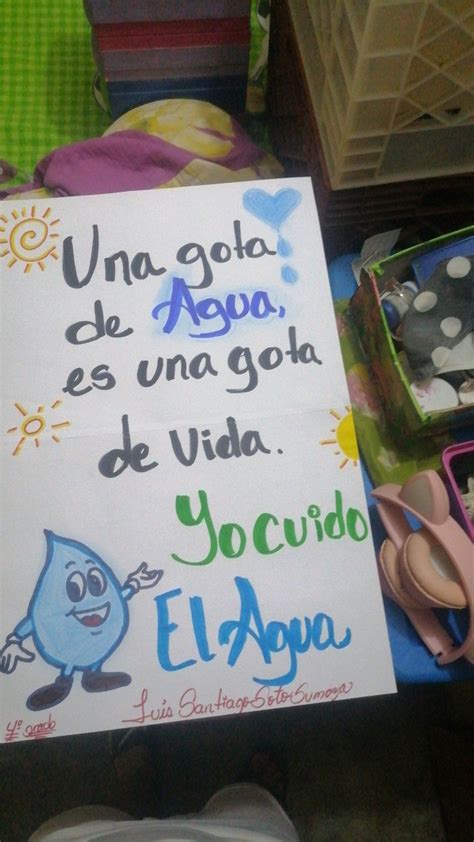 Una gota
de Agua,
es una gota
de Vida.
Yo cuido
El Agua
Luis Santiago Soto Sumoza
4° grado